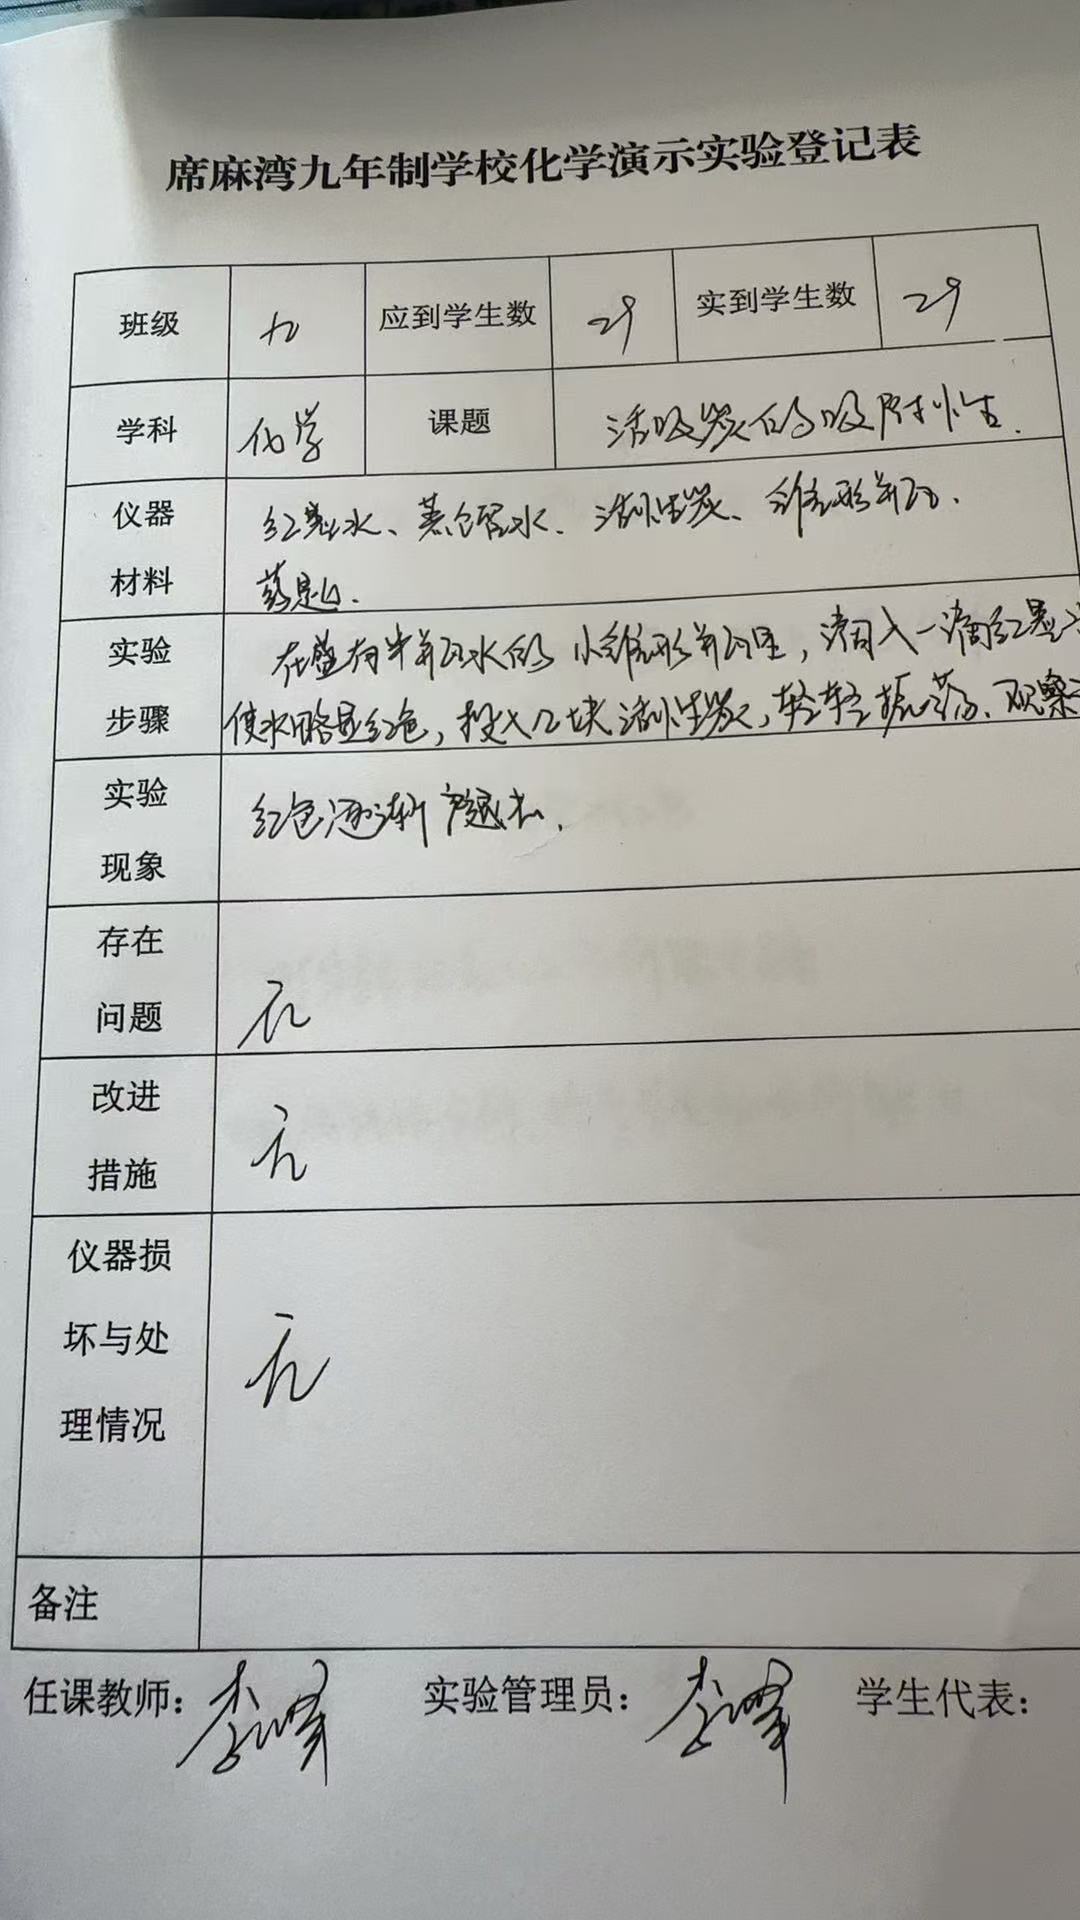 席麻湾九年制学校化学演示实验登记表
班级 九 应到学生数 29 实到学生数 29
学科 化学 课题 活吸炭的吸附性.
仪器材料 红墨水、蒸馏水、活性炭、锥形瓶、
药匙.
实验步骤 在盛有半瓶水的小锥形瓶里，滴入一滴红墨
使水略显红色，投入几块活性炭，轻轻振荡、观察
实验现象 红色逐渐褪去.
存在问题 无
改进措施 无
仪器损坏与处理情况 无
备注
任课教师： 实验管理员： 学生代表：